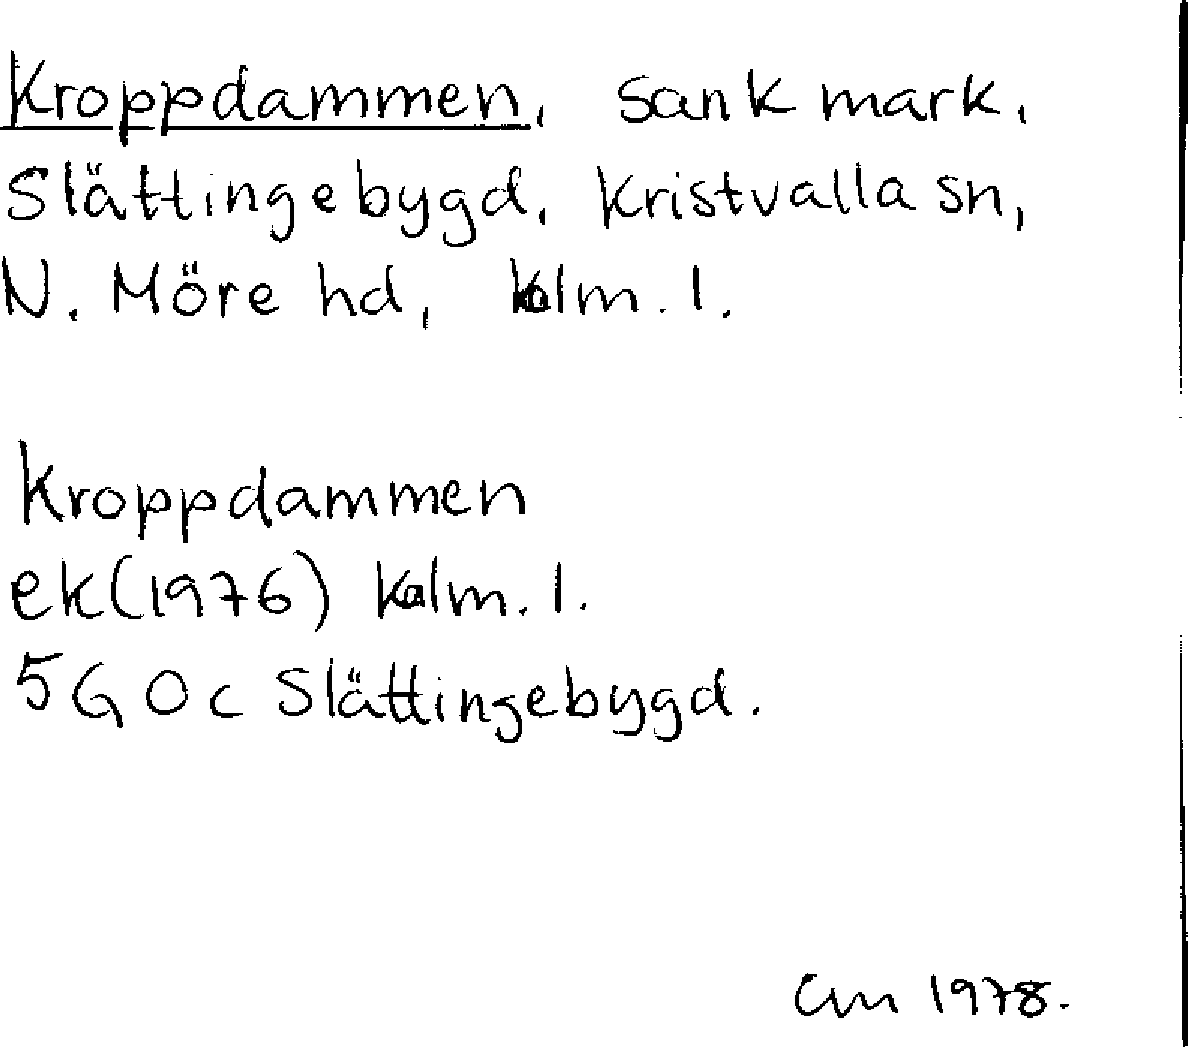 Kroppdammen, sank mark,
Slättingebygd, Kristvalla sn,
N. Möre hd, Kalm. l.
Kroppdammen
ek(1976) Kalm. l.
5G 0c Slättingebygd.
1978.